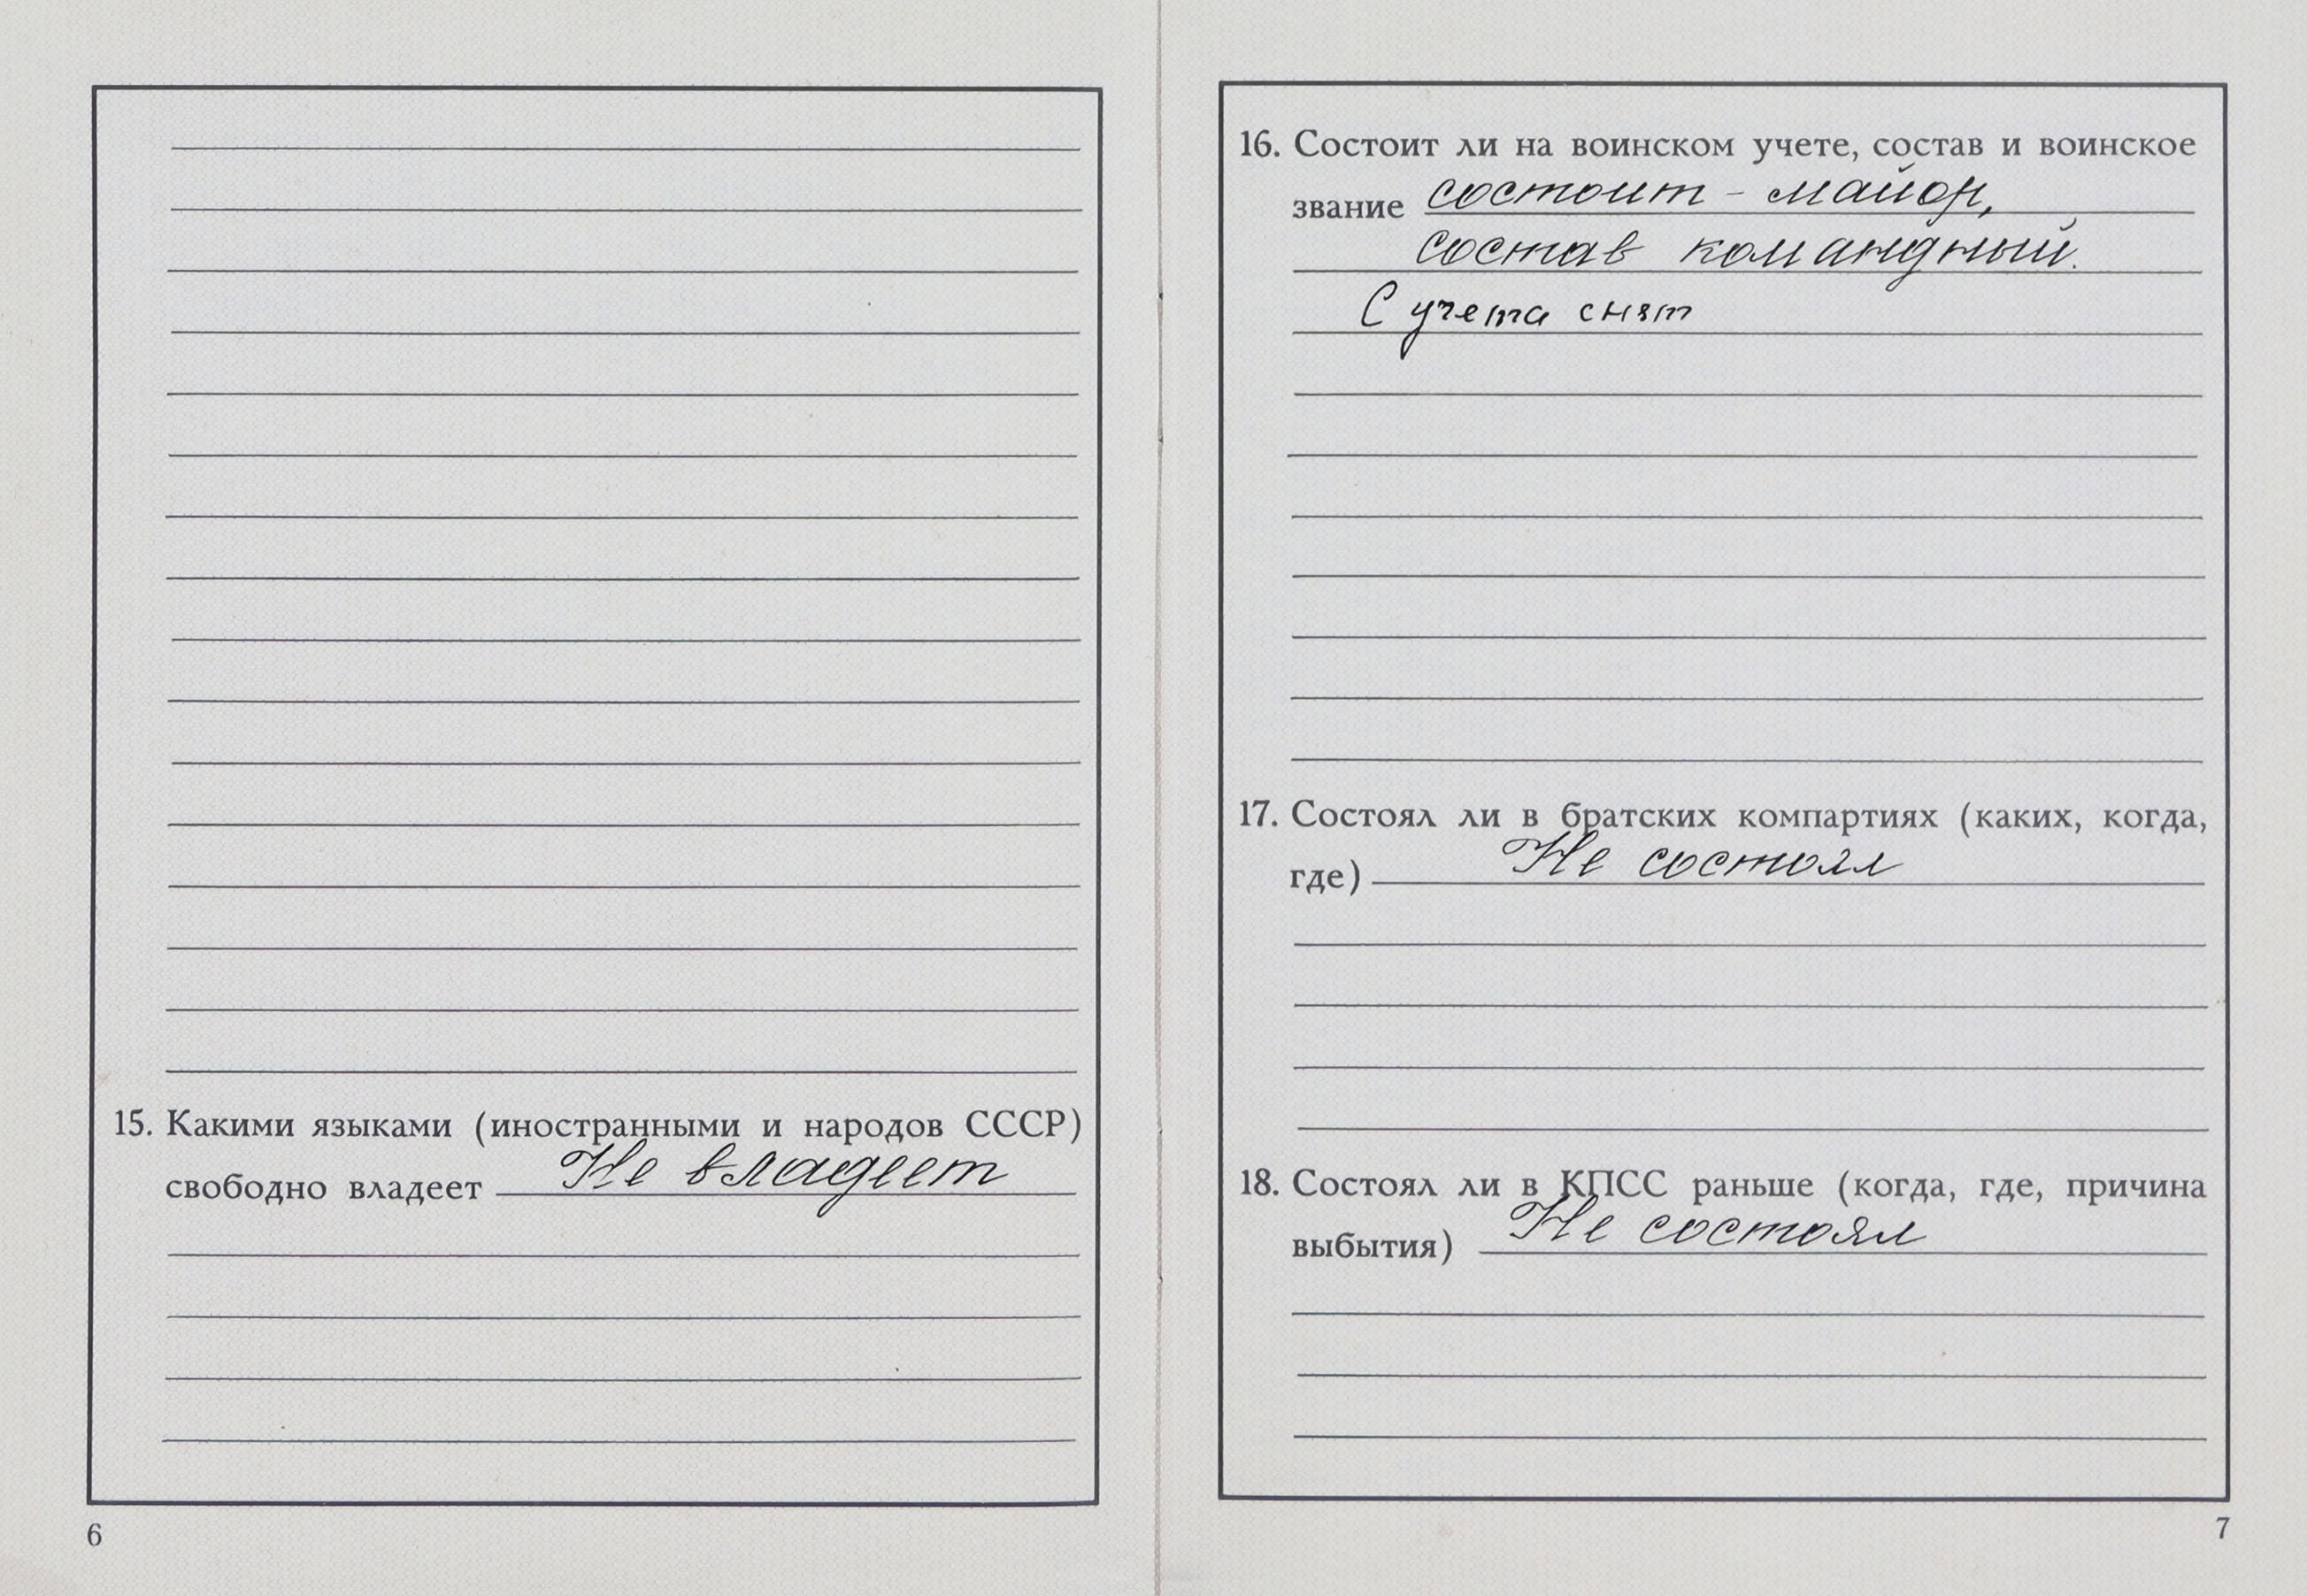 15. Какими языками (иностранными и народов СССР)
свободно владеет Не владеет
6
16. Состоит ли на воинском учете, состав и воинское
звание состоит - майор,
состав командный.
С учета снят
17. Состоял ли в братских компартиях (каких, когда,
где) Не состоял
18. Состоял ли в КПСС раньше (когда, где, причина
выбытия) Не состоял
7